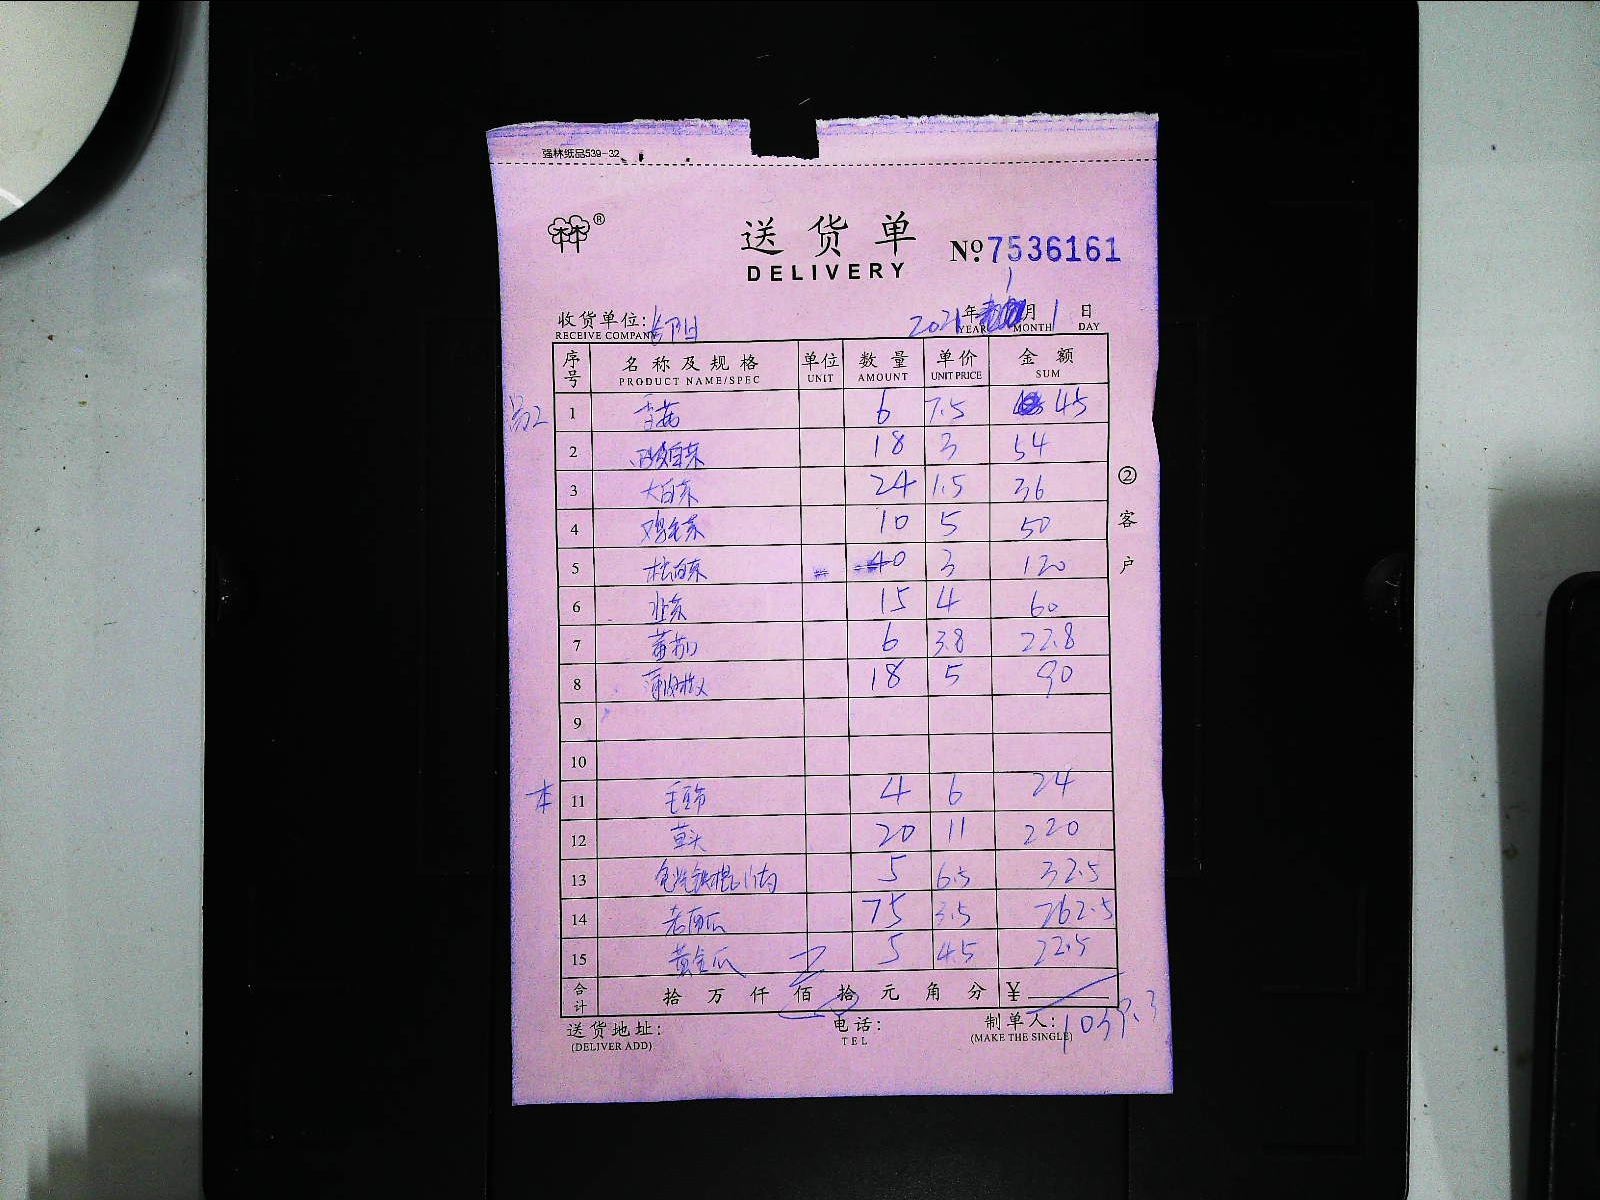 强林纸品539-32
®
送货单
DELIVERY
Nº 7536161
收货单位:
RECEIVE COMPANY
2021 年 1 月 1 日
YEAR MONTH DAY
序号 名称及规格 单位 数量 单价 金额
PRODUCT NAME/SPEC UNIT AMOUNT UNIT PRICE SUM
1 香菇 6 7.5 45
2 18 3 54
3 大白菜 24 1.5 36
4 鸡毛菜 10 5 50
5 杭白菜 40 3 120
6 韭菜 15 4 60
7 蕃茄 6 3.8 22.8
8 18 5 90
9
10
本 11 毛豆节 4 6 24
12 草头 20 11 220
13 5 6.5 32.5
14 老南瓜 75 3.5 262.5
15 黄金瓜 5 4.5 22.5
合计 拾 万 仟 佰 拾 元 角 分 ¥
1039.3
送货地址: 电话: 制单人:
(DELIVER ADD) TEL (MAKE THE SINGLE)
②客户